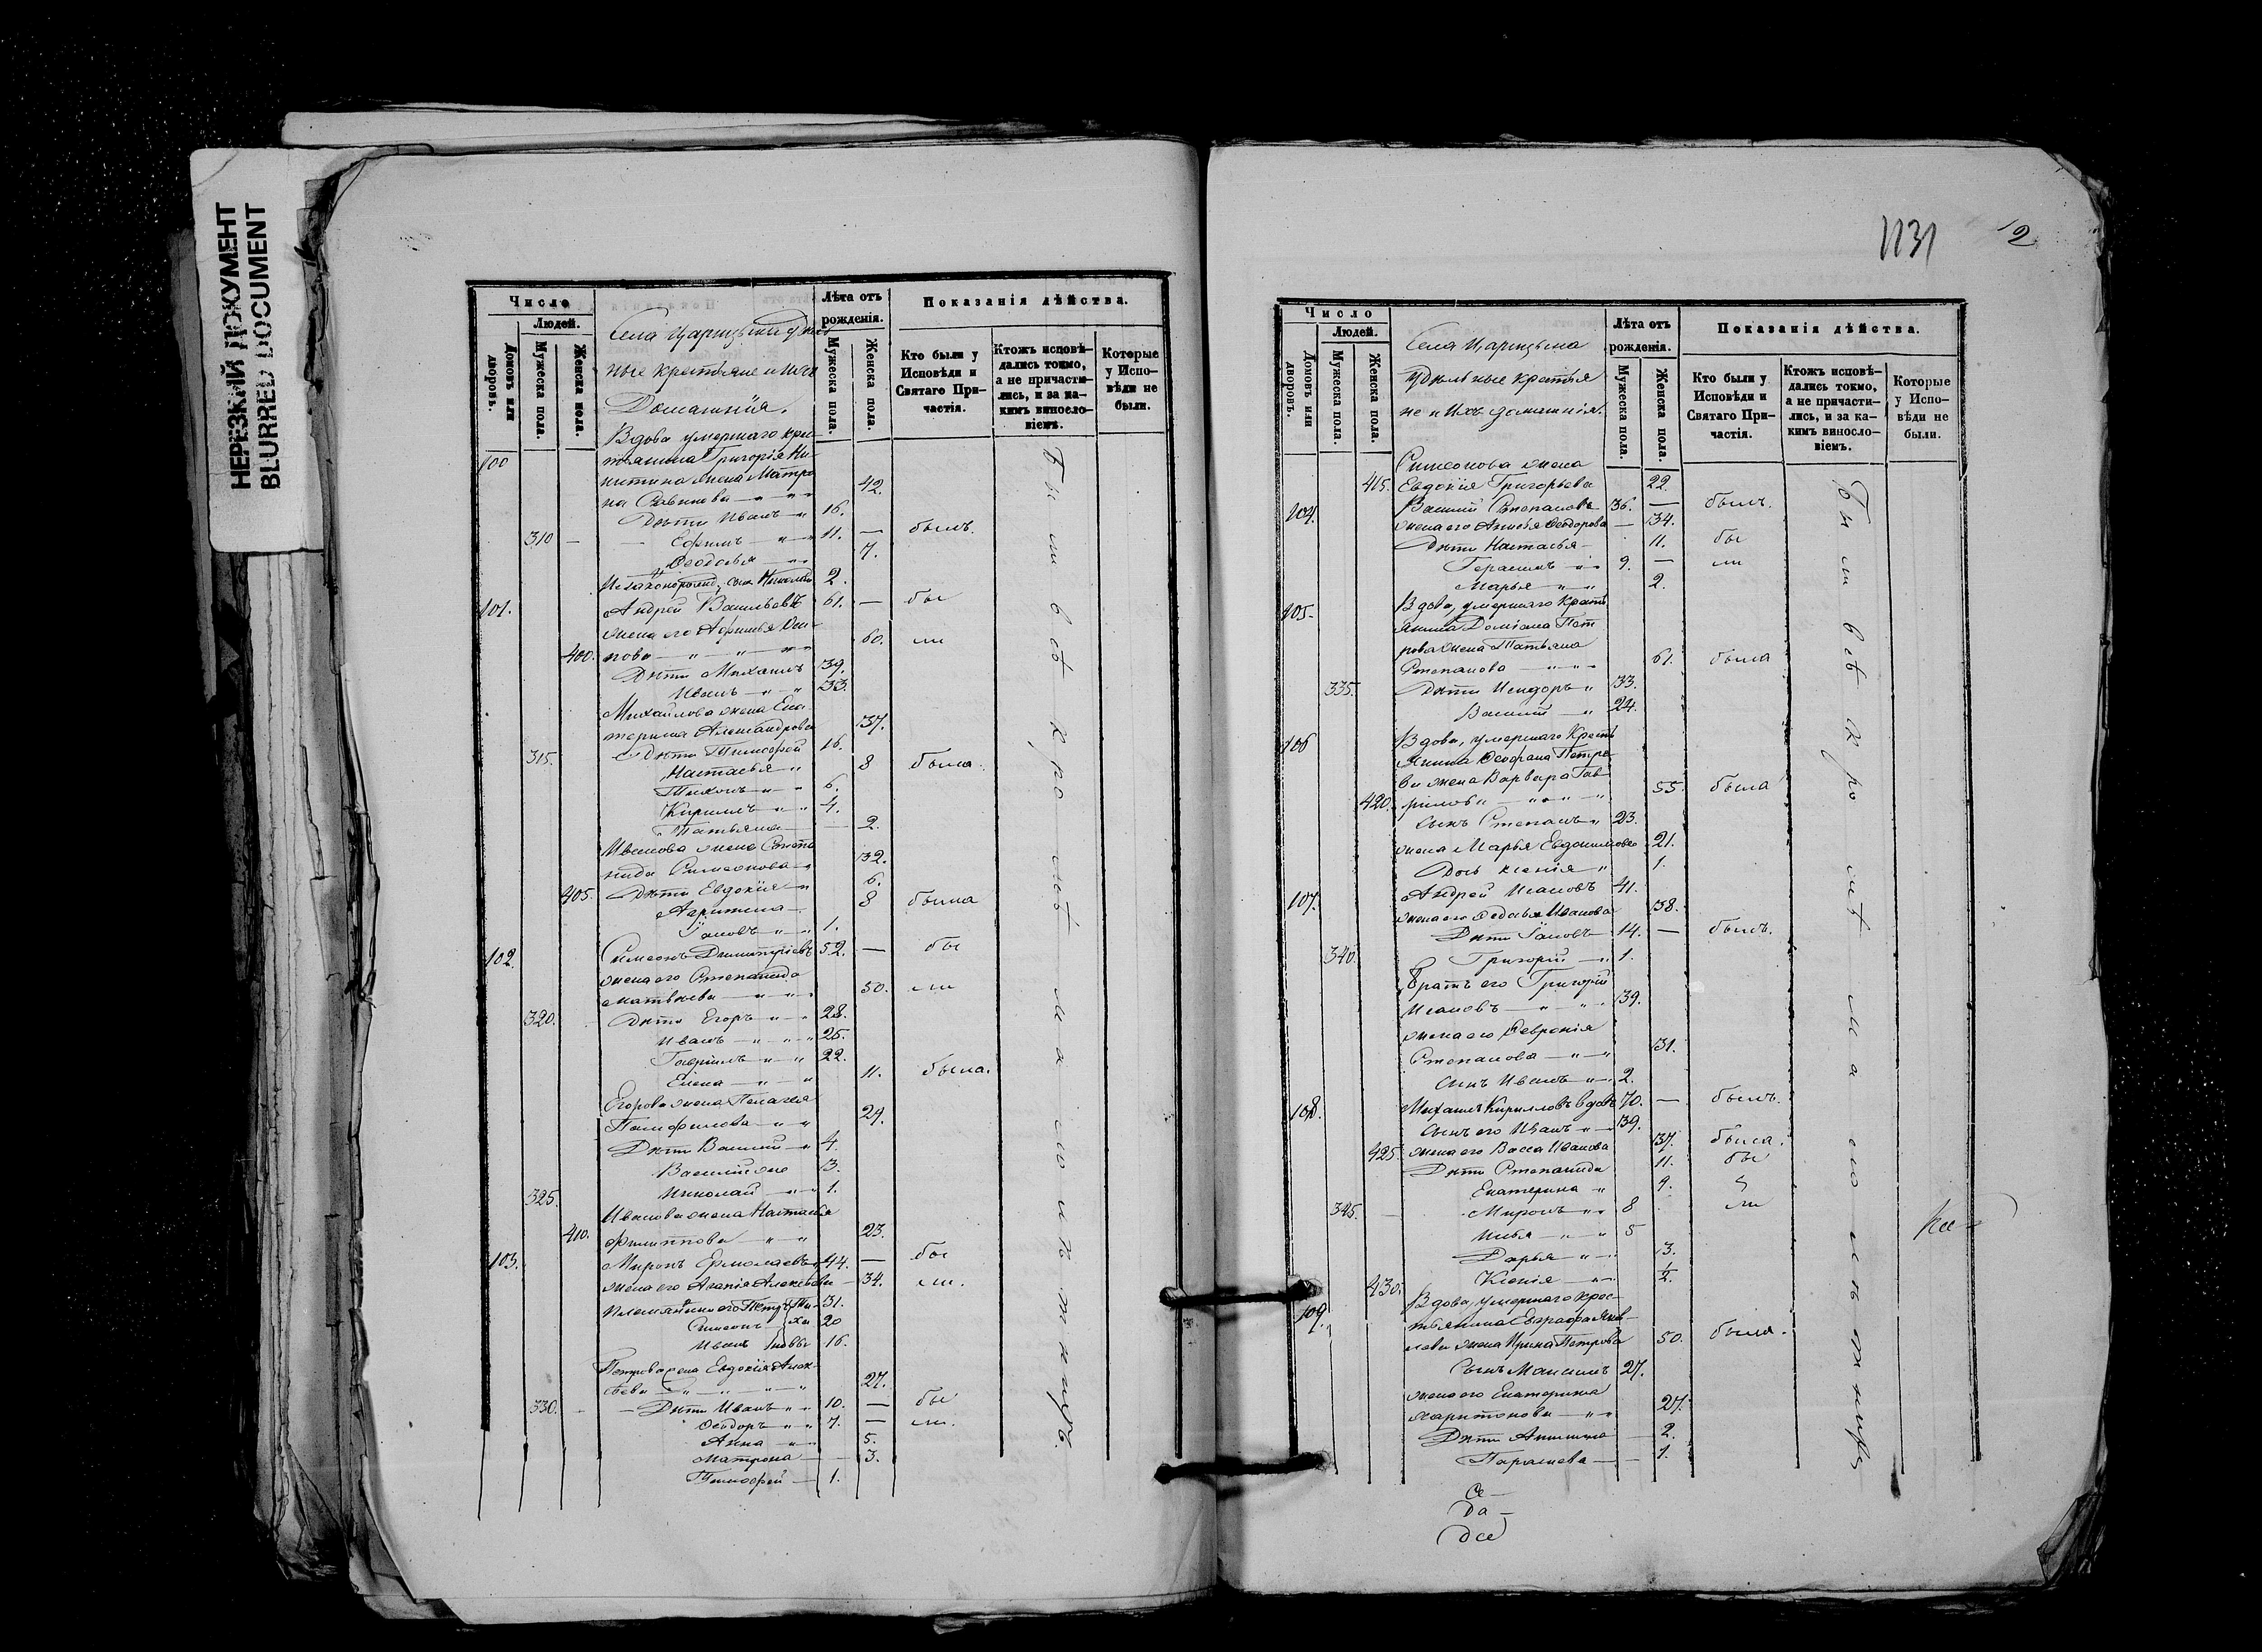 НЕРЕЗКИЙ ДОКУМЕНТ
BLURRED DOCUMENT
Число
Людей.
Домовъ или дворовъ.
Мужеска пола.
Женска пола.
Села Царицына удѣль
ные крестьяне и ихъ
Домашнія.
Лѣта отъ рожденія.
Мужеска пола.
Женска пола.
Показанія дѣйства.
Кто были у Исповѣди и Святаго Причастія.
Ктожъ исповѣдались токмо, а не причастились, и за какимъ винословіемъ.
Которые у Исповѣди не были.
Вдова умершаго кре
100 стьянина Григорія Ни
китина жена Матро 42.
на Савинова
Дѣти Иванъ 16.
310 Ефимъ 11. — былъ.
Ѳеодосья 7.
Незаконорожд. сын Николай 2.
101. Андрей Васильевъ 61. — бы
жена его Афимья Оси 60. ли
400. пова
Дѣти Михаилъ 39.
Иванъ 33.
Михайлова жена Ека
терина Александрова 37.
315. Дѣти Тимофей 16.
Настасья 8 была.
Тихонъ 6.
Кириллъ 4.
Татьяна 2.
Иванова жена Степа
нида Симеонова 32.
405. Дѣти Евдокія 6.
Акрипина 8 была
Іаковъ 1.
102. Симеонъ Димитріевъ 52. — бы
жена его Степанида
Матвѣева 50. ли
320. Дѣти Егоръ 28.
Иванъ 25.
Гавріилъ 22.
Елена 11. была.
Егорова жена Пелагея
Памфилова 29.
Дѣти Василій 4.
Василій же 3.
325. Николай 1.
Иванова жена Настасья
410. Филиппова 23.
103. Миронъ Ермолаевъ 44. — бы
жена его Агапія Алексѣева 34. ли.
Племянники его Петръ 31.
Симеонъ 20
Иванъ 16.
Петрова жена Евдокія Алек
сѣева 27.
330. Дѣти Иванъ 10. — бы
Ѳеодоръ 7. — ли.
Анна 5.
Матрона 3.
Тимофей 1.
Были всѣ кромѣ
1131
12
Число
Людей.
Домовъ или дворовъ.
Мужеска пола.
Женска пола.
Села Царицына
удѣльные крестья
не и ихъ домашнія.
Лѣта отъ рожденія.
Мужеска пола.
Женска пола.
Показанія дѣйства.
Кто были у Исповѣди и Святаго Причастія.
Ктожъ исповѣдались токмо, а не причастились, и за какимъ винословіемъ.
Которые у Исповѣди не были.
Симеонова жена
415. Евдокія Григорьева 22.
104. Василій Степановъ 36. — былъ.
жена его Анисья Ѳеодорова — 34.
Дѣти Настасья 11. бы
Герасимъ 9. — ли
Марья 2.
105. Вдова, умершаго Кресть
янина Доміана Пет
рова жена Татьяна
Степанова 61. была
335. Дѣти Исидоръ 33.
Василій 24.
106 Вдова, умершаго Кресть
янина Ѳеофана Петро
ва жена Варвара Гав
420. рилова 55. была
сынъ Степанъ 23.
жена Марья Евдокимова 21.
Дочь Ксенія 1.
107. Андрей Исаковъ 41.
жена его Ѳедосья Иванова 38.
Дѣти Іаковъ 14. — былъ.
340. Григорій 1.
Братъ его Григорій
Исаковъ 39.
жена его Февронія
Степанова 31.
сынъ Иванъ 2.
108. Михаилъ Кирилловъ вдовъ 70. — былъ.
сынъ его Иванъ 39.
425. жена его Васса Иванова 37. была.
Дѣти Степанида 11. бы
Екатерина 9.
345. Миронъ 8 ли
Илья 5
Дарья 3.
430. Ксенія 1/2.
109. Вдова, умершаго крес
тьянина Евграфа Яков
лева жена Ирина Петрова 50. была.
Сынъ Максимъ 27.
жена его Екатерина
Харитонова 27.
Дѣти Акилина 2.
Параскева 1.
Были всѣ кромѣ
Се-
Да-
Дсе